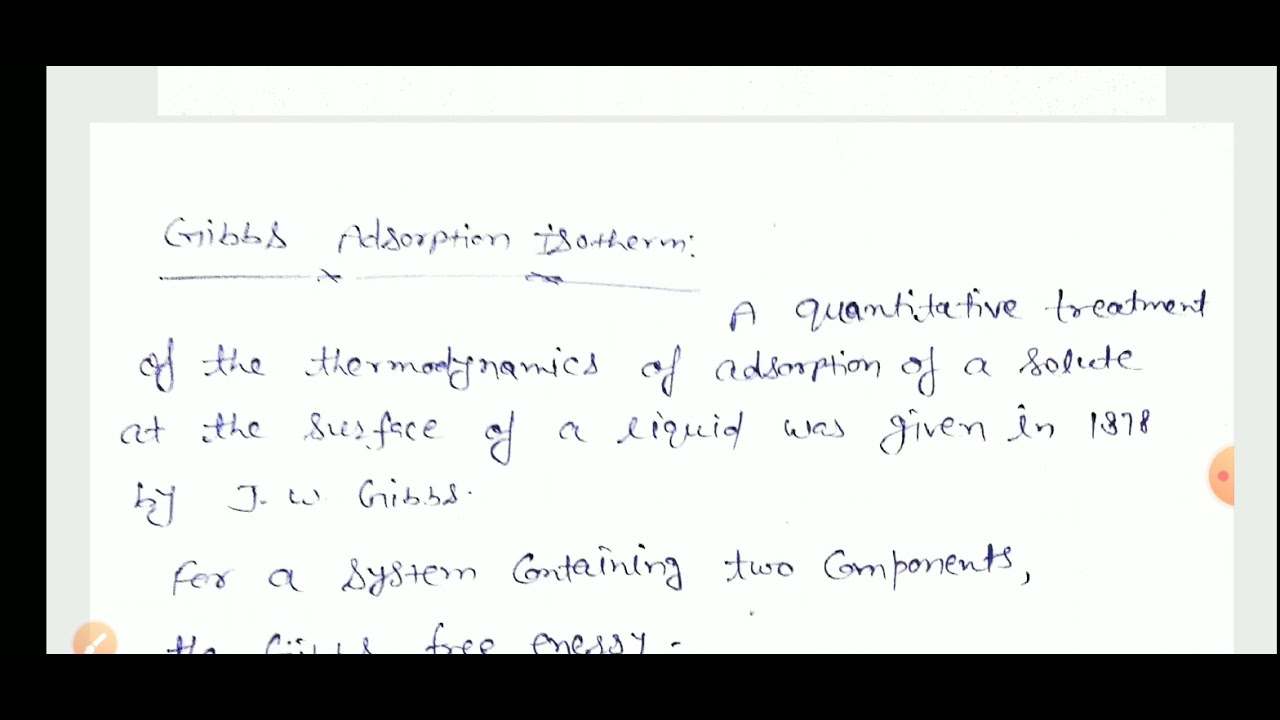 Gibbs Adsorption isotherm:
A quantitative treatment
of the thermodynamics of adsorption of a solute
at the surface of a liquid was given in 1878
by J. W Gibbs.
For a system containing two components,
the Gibbs free energy